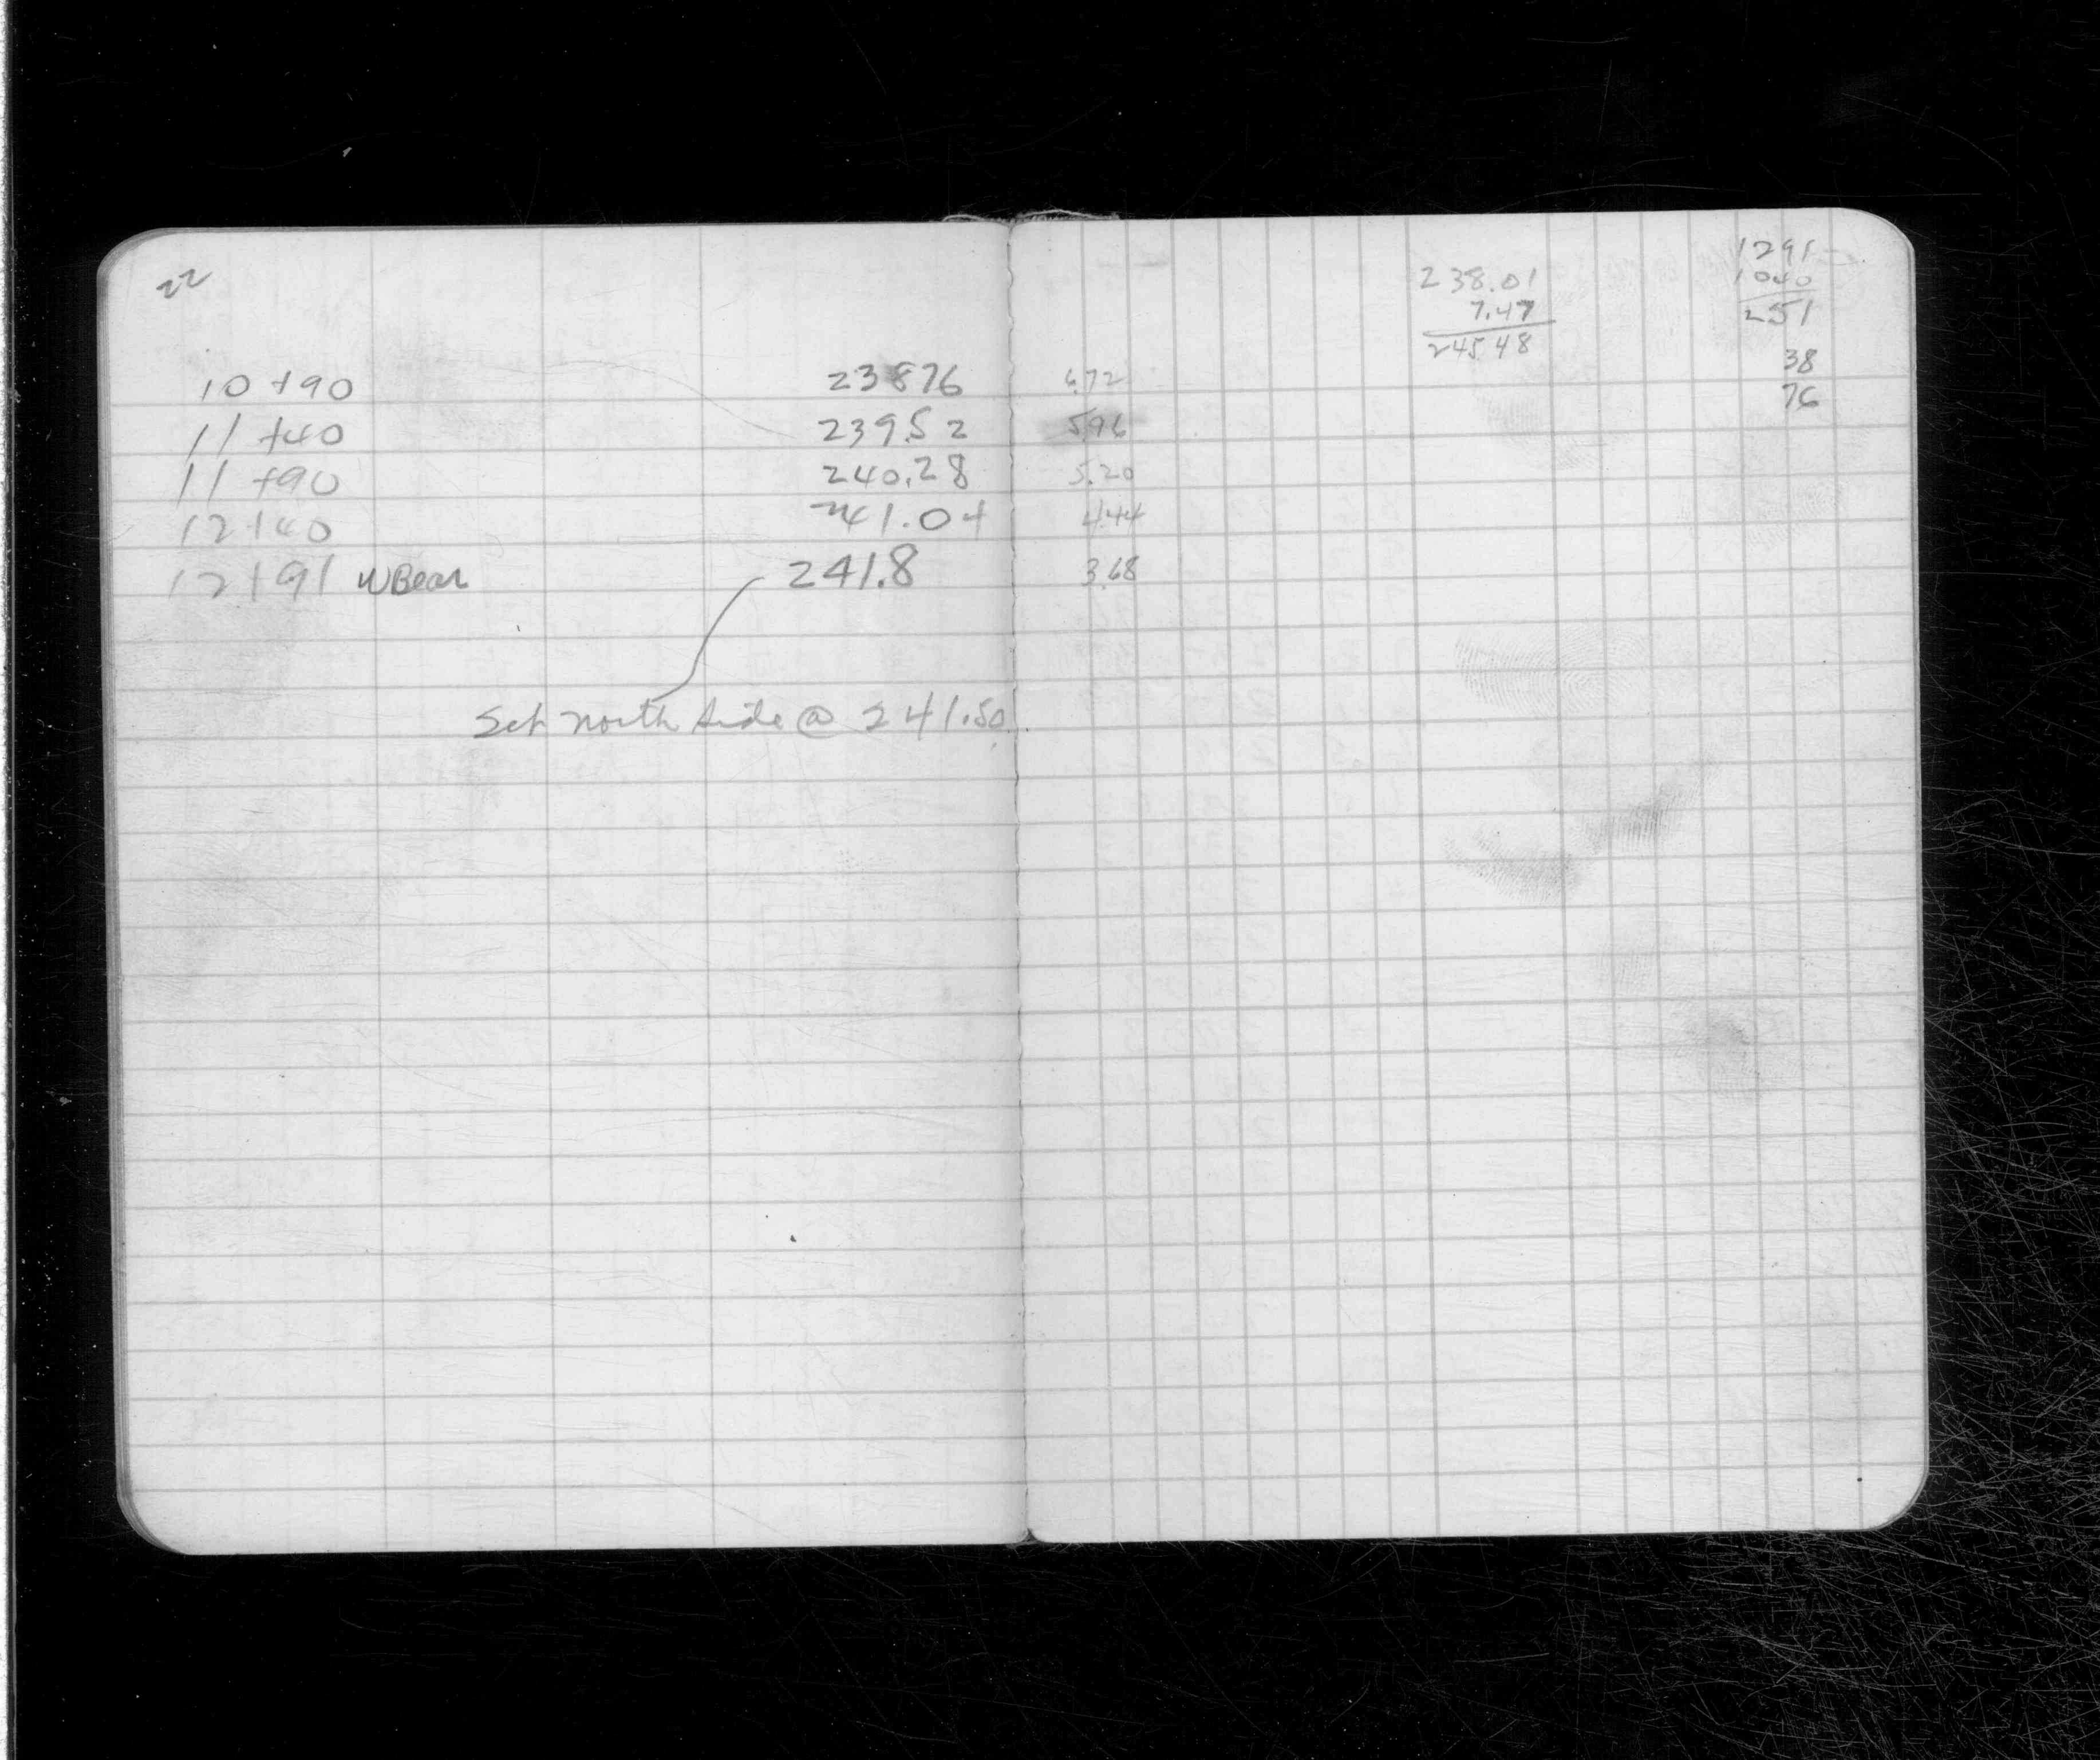 22
10+90 238 76 6.72
11+40 239.52 5.96
11+90 240.28 5.20
12+40 241.04 4.44
12+91 W Bear 241.8 3.68
Set north side @ 241.50
238.01
7.47
245.48
1291
1040
251
38
76